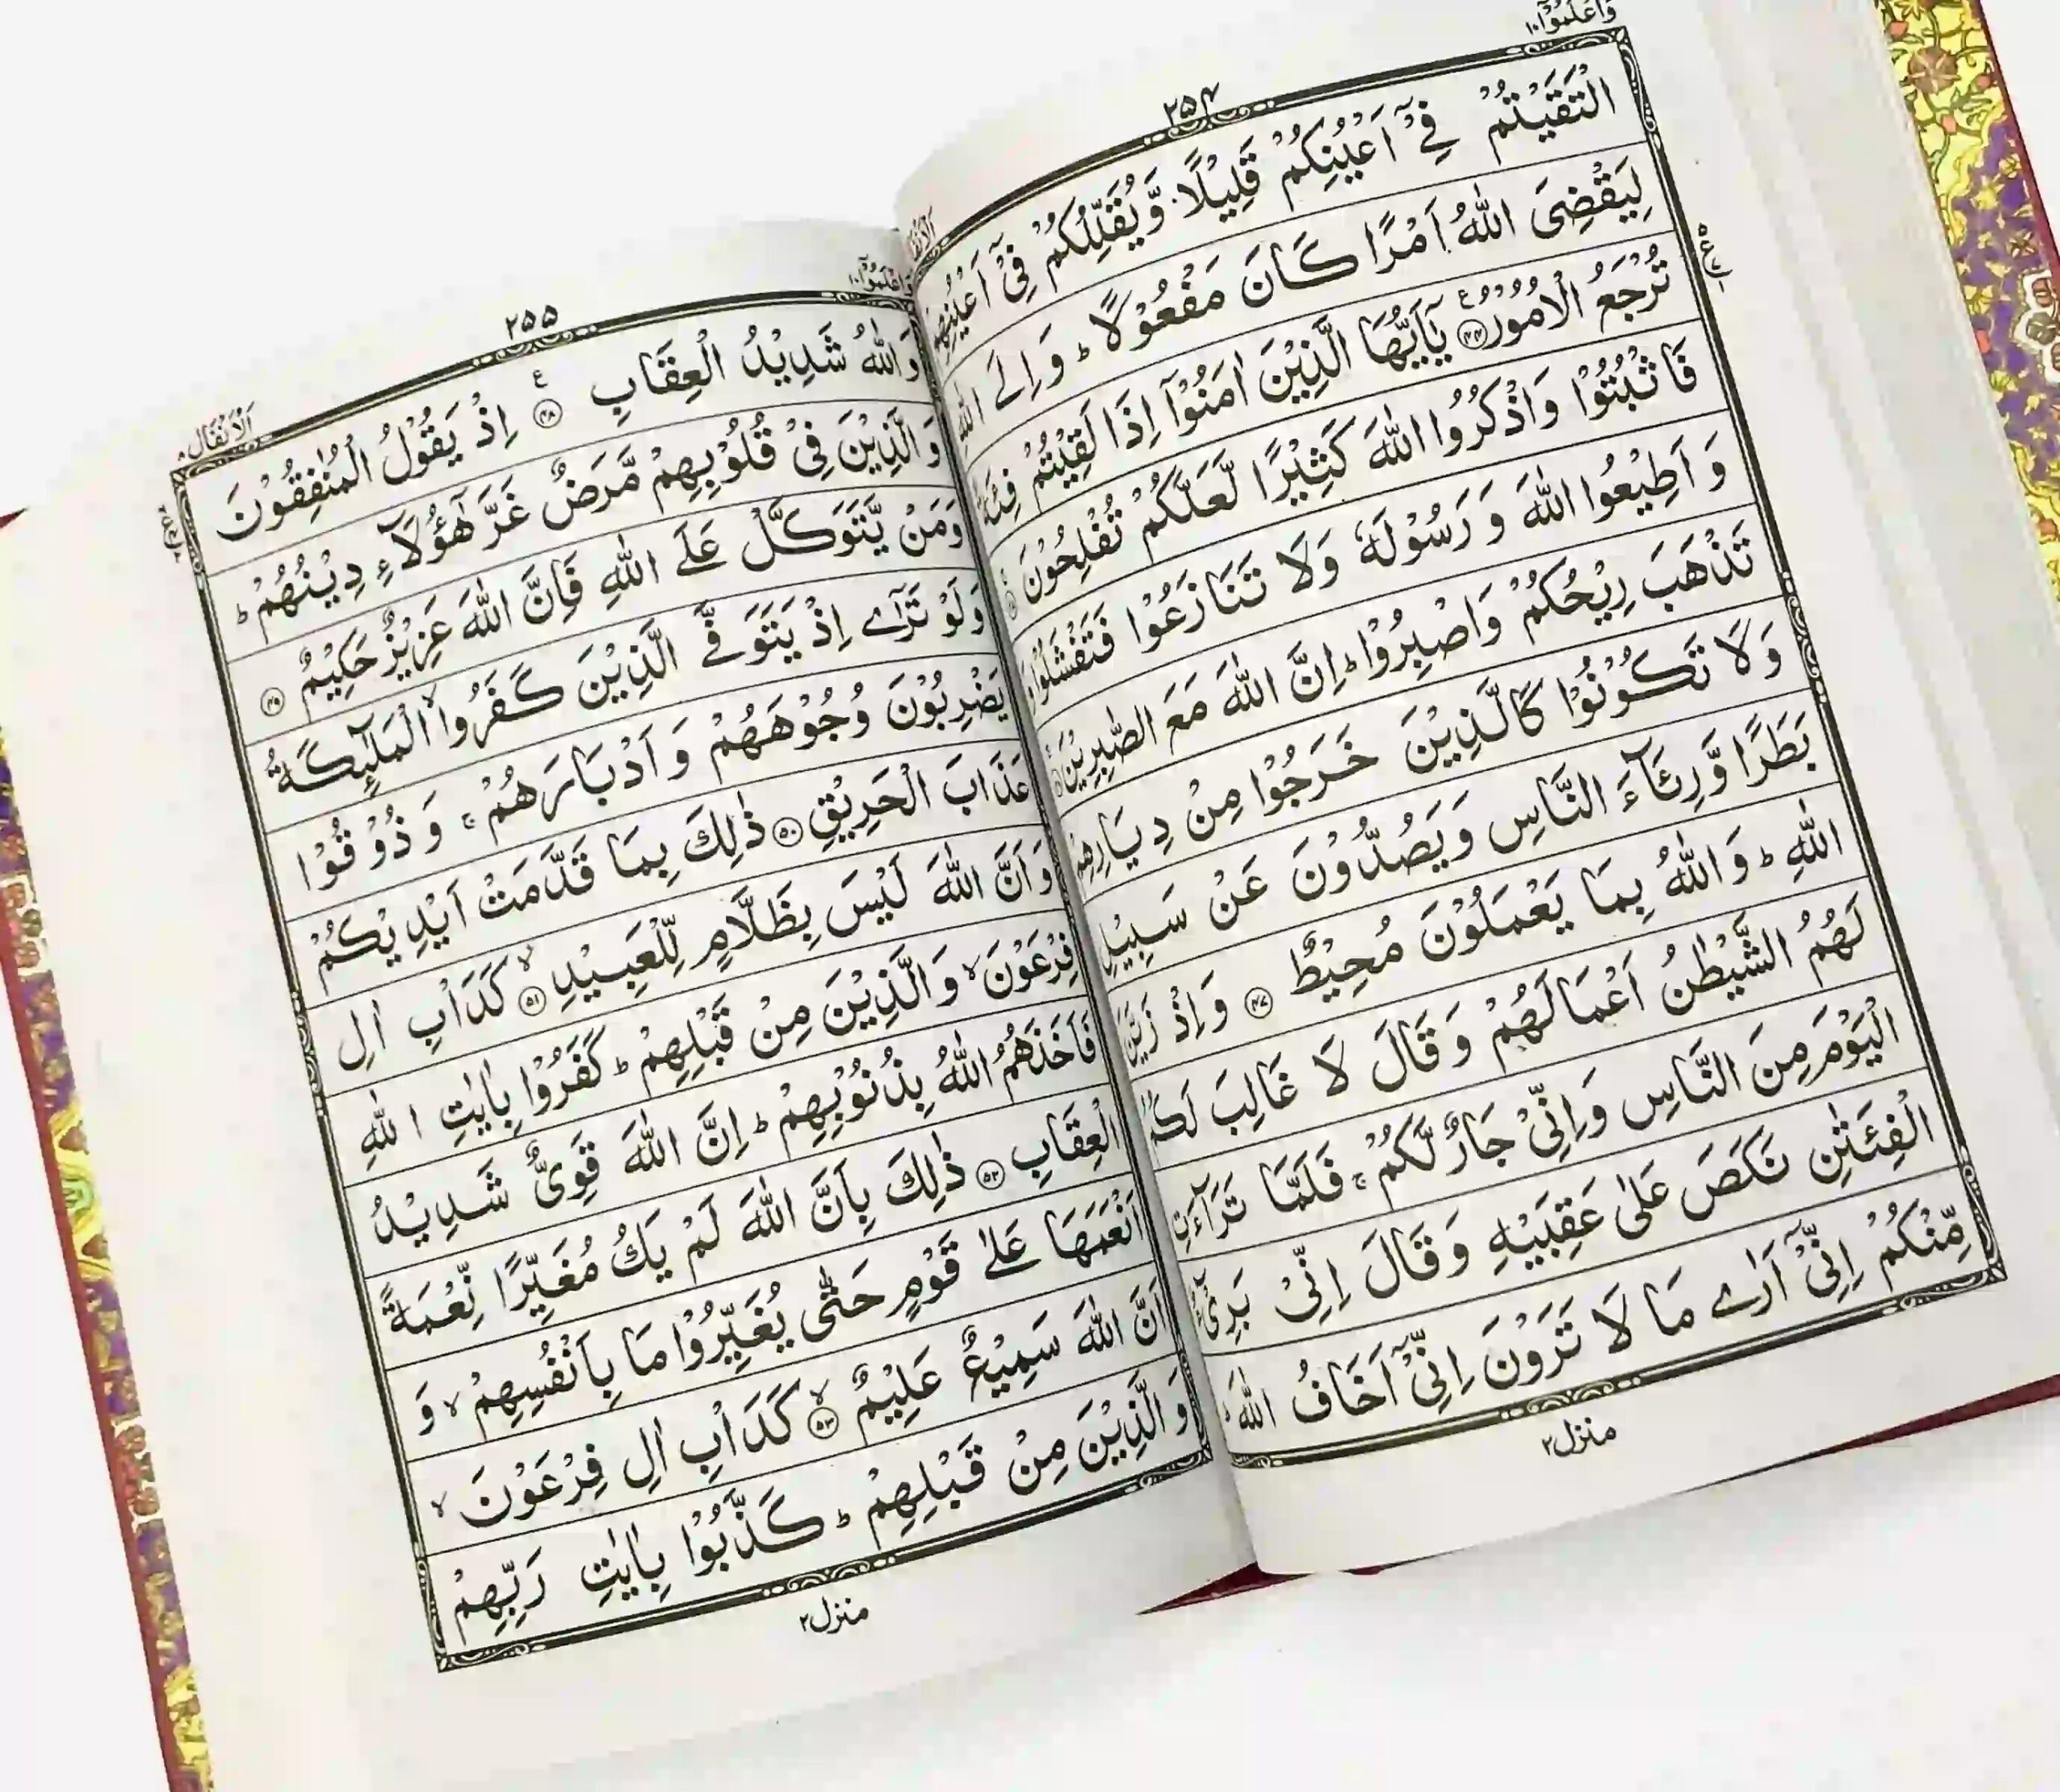 وَاعْلَمُوْۤا ١٠
٢٥٤
الْتَقَيْتُمْ فِيْۤ اَعْيُنِكُمْ قَلِيْلًا وَّيُقَلِّلُكُمْ فِيْۤ اَعْيُنِهِمْ
لِيَقْضِىَ اللّٰهُ اَمْرًا كَانَ مَفْعُوْلًا ؕ وَاِلَى اللّٰهِ
تُرْجَعُ الْاُمُوْرُ ۝٤٤ يٰۤاَيُّهَا الَّذِيْنَ اٰمَنُوْۤا اِذَا لَقِيْتُمْ فِئَةً
فَاثْبُتُوْا وَاذْكُرُوا اللّٰهَ كَثِيْرًا لَّعَلَّكُمْ تُفْلِحُوْنَ
وَ اَطِيْعُوا اللّٰهَ وَ رَسُوْلَهٗ وَلَا تَنَازَعُوْا فَتَفْشَلُوْا
تَذْهَبَ رِيْحُكُمْ وَاصْبِرُوْا ؕ اِنَّ اللّٰهَ مَعَ الصّٰبِرِيْنَ
وَلَا تَكُوْنُوْا كَالَّذِيْنَ خَرَجُوْا مِنْ دِيَارِهِمْ
بَطَرًا وَّرِئَآءَ النَّاسِ وَيَصُدُّوْنَ عَنْ سَبِيْلِ
اللّٰهِ ؕ وَاللّٰهُ بِمَا يَعْمَلُوْنَ مُحِيْطٌ ۝٤٧ وَاِذْ زَيَّنَ
لَهُمُ الشَّيْطٰنُ اَعْمَالَهُمْ وَقَالَ لَا غَالِبَ لَكُمُ
الْيَوْمَ مِنَ النَّاسِ وَاِنِّىْ جَارٌ لَّكُمْ ۚ فَلَمَّا تَرَآءَتِ
الْفِئَتٰنِ نَكَصَ عَلٰى عَقِبَيْهِ وَقَالَ اِنِّىْ بَرِىْٓءٌ
مِّنْكُمْ اِنِّىْۤ اَرٰى مَا لَا تَرَوْنَ اِنِّىْۤ اَخَافُ اللّٰهَ ؕ
منزل ٢
وَاعْلَمُوْۤا ١٠
٢٥٥
اَلْاَنْفَال ٨
وَاللّٰهُ شَدِيْدُ الْعِقَابِ ۝٤٨ اِذْ يَقُوْلُ الْمُنٰفِقُوْنَ
وَالَّذِيْنَ فِىْ قُلُوْبِهِمْ مَّرَضٌ غَرَّ هٰۤؤُلَآءِ دِيْنُهُمْ ؕ
وَمَنْ يَّتَوَكَّلْ عَلَى اللّٰهِ فَاِنَّ اللّٰهَ عَزِيْزٌ حَكِيْمٌ ۝٤٩
وَلَوْ تَرٰٓى اِذْ يَتَوَفَّى الَّذِيْنَ كَفَرُوا ۙ الْمَلٰٓئِكَةُ
يَضْرِبُوْنَ وُجُوْهَهُمْ وَ اَدْبَارَهُمْ ۚ وَ ذُوْقُوْا
عَذَابَ الْحَرِيْقِ ۝٥٠ ذٰلِكَ بِمَا قَدَّمَتْ اَيْدِيْكُمْ
وَ اَنَّ اللّٰهَ لَيْسَ بِظَلَّامٍ لِّلْعَبِيْدِ ۙ‏۝٥١ كَدَاْبِ اٰلِ
فِرْعَوْنَ ۙ وَالَّذِيْنَ مِنْ قَبْلِهِمْ ؕ كَفَرُوْا بِاٰيٰتِ اللّٰهِ
فَاَخَذَهُمُ اللّٰهُ بِذُنُوْبِهِمْ ؕ اِنَّ اللّٰهَ قَوِىٌّ شَدِيْدُ
الْعِقَابِ ۝٥٢ ذٰلِكَ بِاَنَّ اللّٰهَ لَمْ يَكُ مُغَيِّرًا نِّعْمَةً
اَنْعَمَهَا عَلٰى قَوْمٍ حَتّٰى يُغَيِّرُوْا مَا بِاَنْفُسِهِمْ ۙ وَ
اَنَّ اللّٰهَ سَمِيْعٌ عَلِيْمٌ ۙ‏۝٥٣ كَدَاْبِ اٰلِ فِرْعَوْنَ ۙ
وَالَّذِيْنَ مِنْ قَبْلِهِمْ ؕ كَذَّبُوْا بِاٰيٰتِ رَبِّهِمْ
منزل ٢